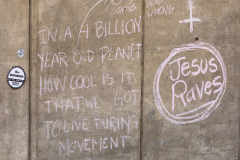 IN A 4 BILLION
YEAR OLD PLANET
HOW COOL IS IT
THAT WE GOT
TO LIVE DURING
MOVEMENT
Jesus
Raves